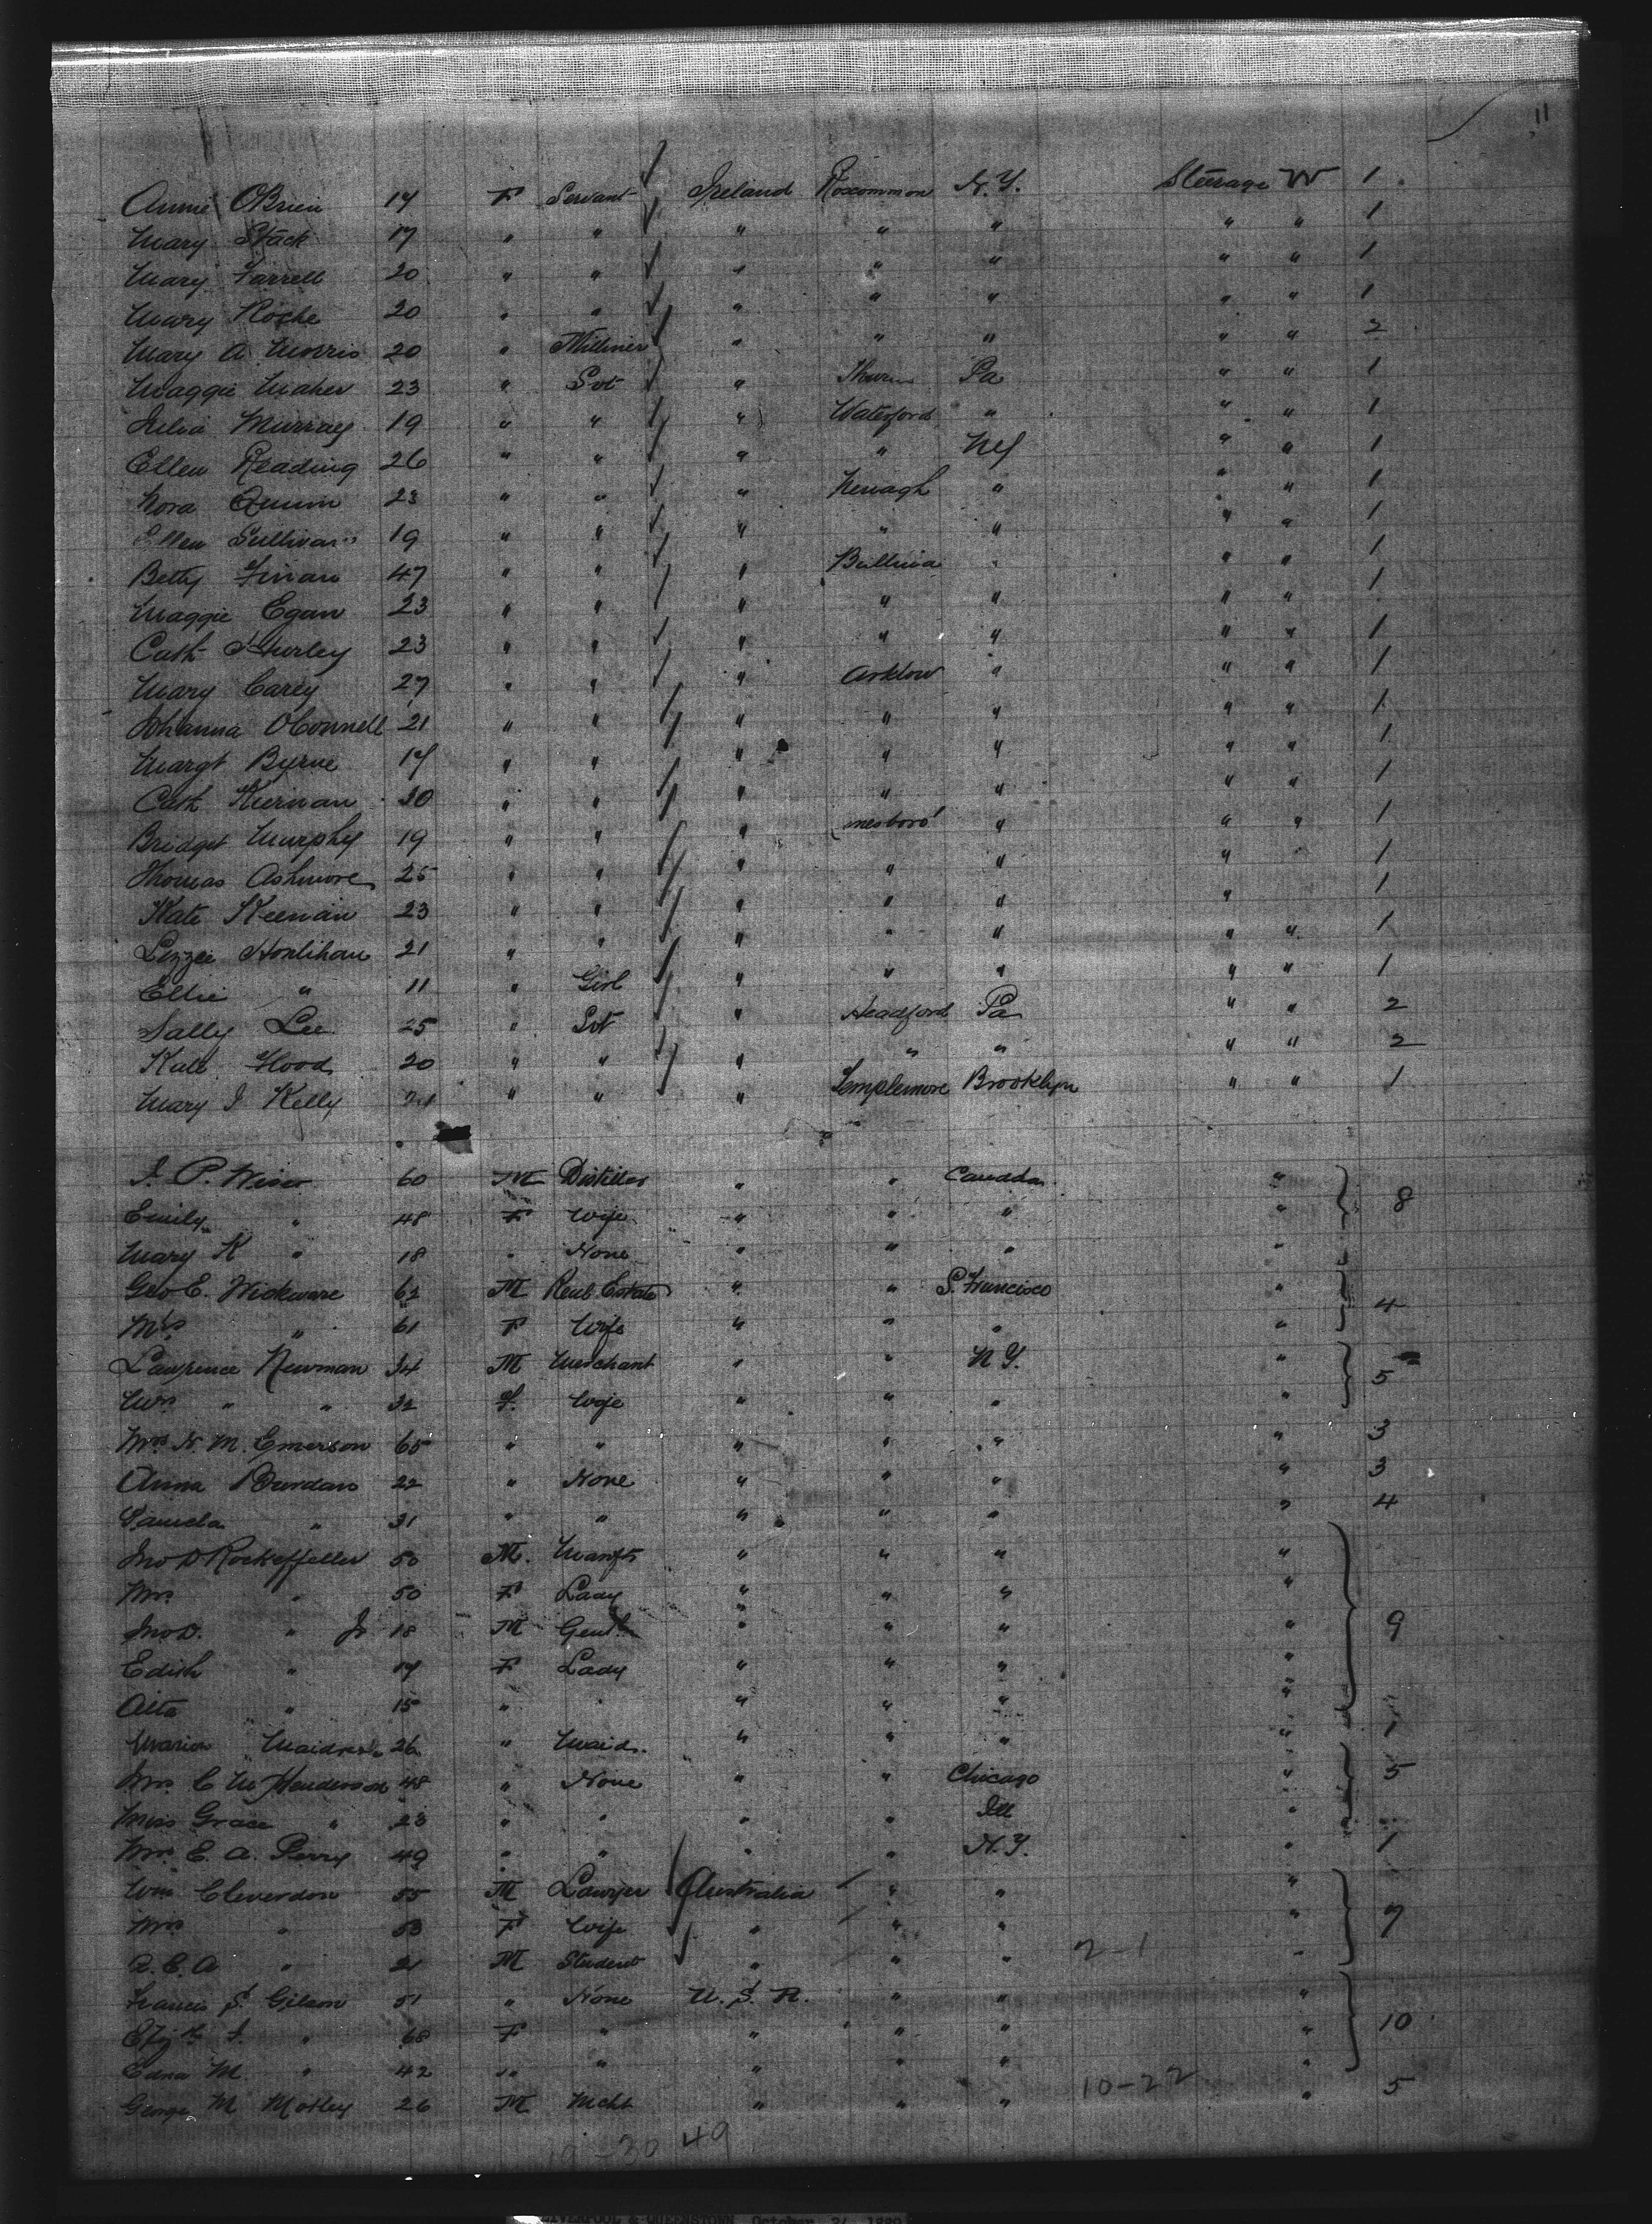 11
Annie OBrien 17 F Servant Ireland Roscommon N.Y. Steerage W 1
Mary Stack 17 " " " " " " " 1
Mary Farrell 20 " " " " " " " 1
Mary Roche 20 " " " " " " " 1
Mary A Morris 20 " Milliner " " " " " 2
Maggie Maher 23 " Svt " Pa " " 1
Julia Murray 19 " " " Waterford " " " 1
Ellen Reading 26 " " " " NY " " 1
Nora Quinn 23 " " " Nenagh " " " 1
Ellen Sullivan 19 " " " " " " " 1
Betty Finan 47 " " " Ballina " " " 1
Maggie Egan 23 " " " " " " " 1
Cath Hurley 23 " " " " " " " 1
Mary Carey 27 " " " Arklow " " " 1
Johanna OConnell 21 " " " " " " " 1
Margt Byrne 17 " " " " " " " 1
Cath Kiernan 30 " " " " " " " 1
Bridget Murphy 19 " " " " " " 1
Thomas Ashmore 25 " " " " " " " 1
Kate Keenan 23 " " " " " " 1
Lizzie Honlihan 21 " " " " " " " 1
Ellie " 11 " Girl " " " " " 1
Sally Lee 25 " Svt " Headford Pa " " 2
Kate Flood 20 " " " " " " " 2
Mary J Kelly " " " Templemore Brooklyn " " 1
J. P. Wiser 60 M Distiller " " Canada "
Emily " 48 F Wife " " " " 8
Mary K " 18 " None " " " "
Geo E. Wickware 62 M Real Estate " " S. Francisco "
Mrs " 61 F Wife " " " " 4
Lawrence Newman 34 M Merchant " " N Y. "
Mrs " " 32 F. Wife " " " " 5
Mrs N. M. Emerson 65 " " " " " " 3
Anna Burdan 22 " None " " " " 3
Pamela " 31 " " " " " " 4
Jno D Rockeffeller 50 M. Manftr " " " "
Mrs " 50 F Lady " " " "
Jno D. " Jr 18 M Gent " " " " 9
Edith " 17 F Lady " " " "
Alta " 15 " " " " " "
Marion 26 " Maid. " " " " 1
Mrs C M Henderson 48 " None " " Chicago " 5
Miss Grace " 23 " " " " Ill "
Mrs E. A. Perry 49 " " " " N.Y. " 1
Wm Cleverdon 55 M Lawyer Australia " " "
Mrs " 53 F Wife " " " " 7
R. E. A " 21 M Student " " " 2-1 "
Francis S. Gilson 51 " None U. S. A. " " "
Elizth S. " 68 F " " " " " 10
Edna M " 42 " " " " " "
George M Motley 26 M Mcht " " " 10-22 " 5
19-30 49
LIVERPOOL & QUEENSTOWN October 24 1889